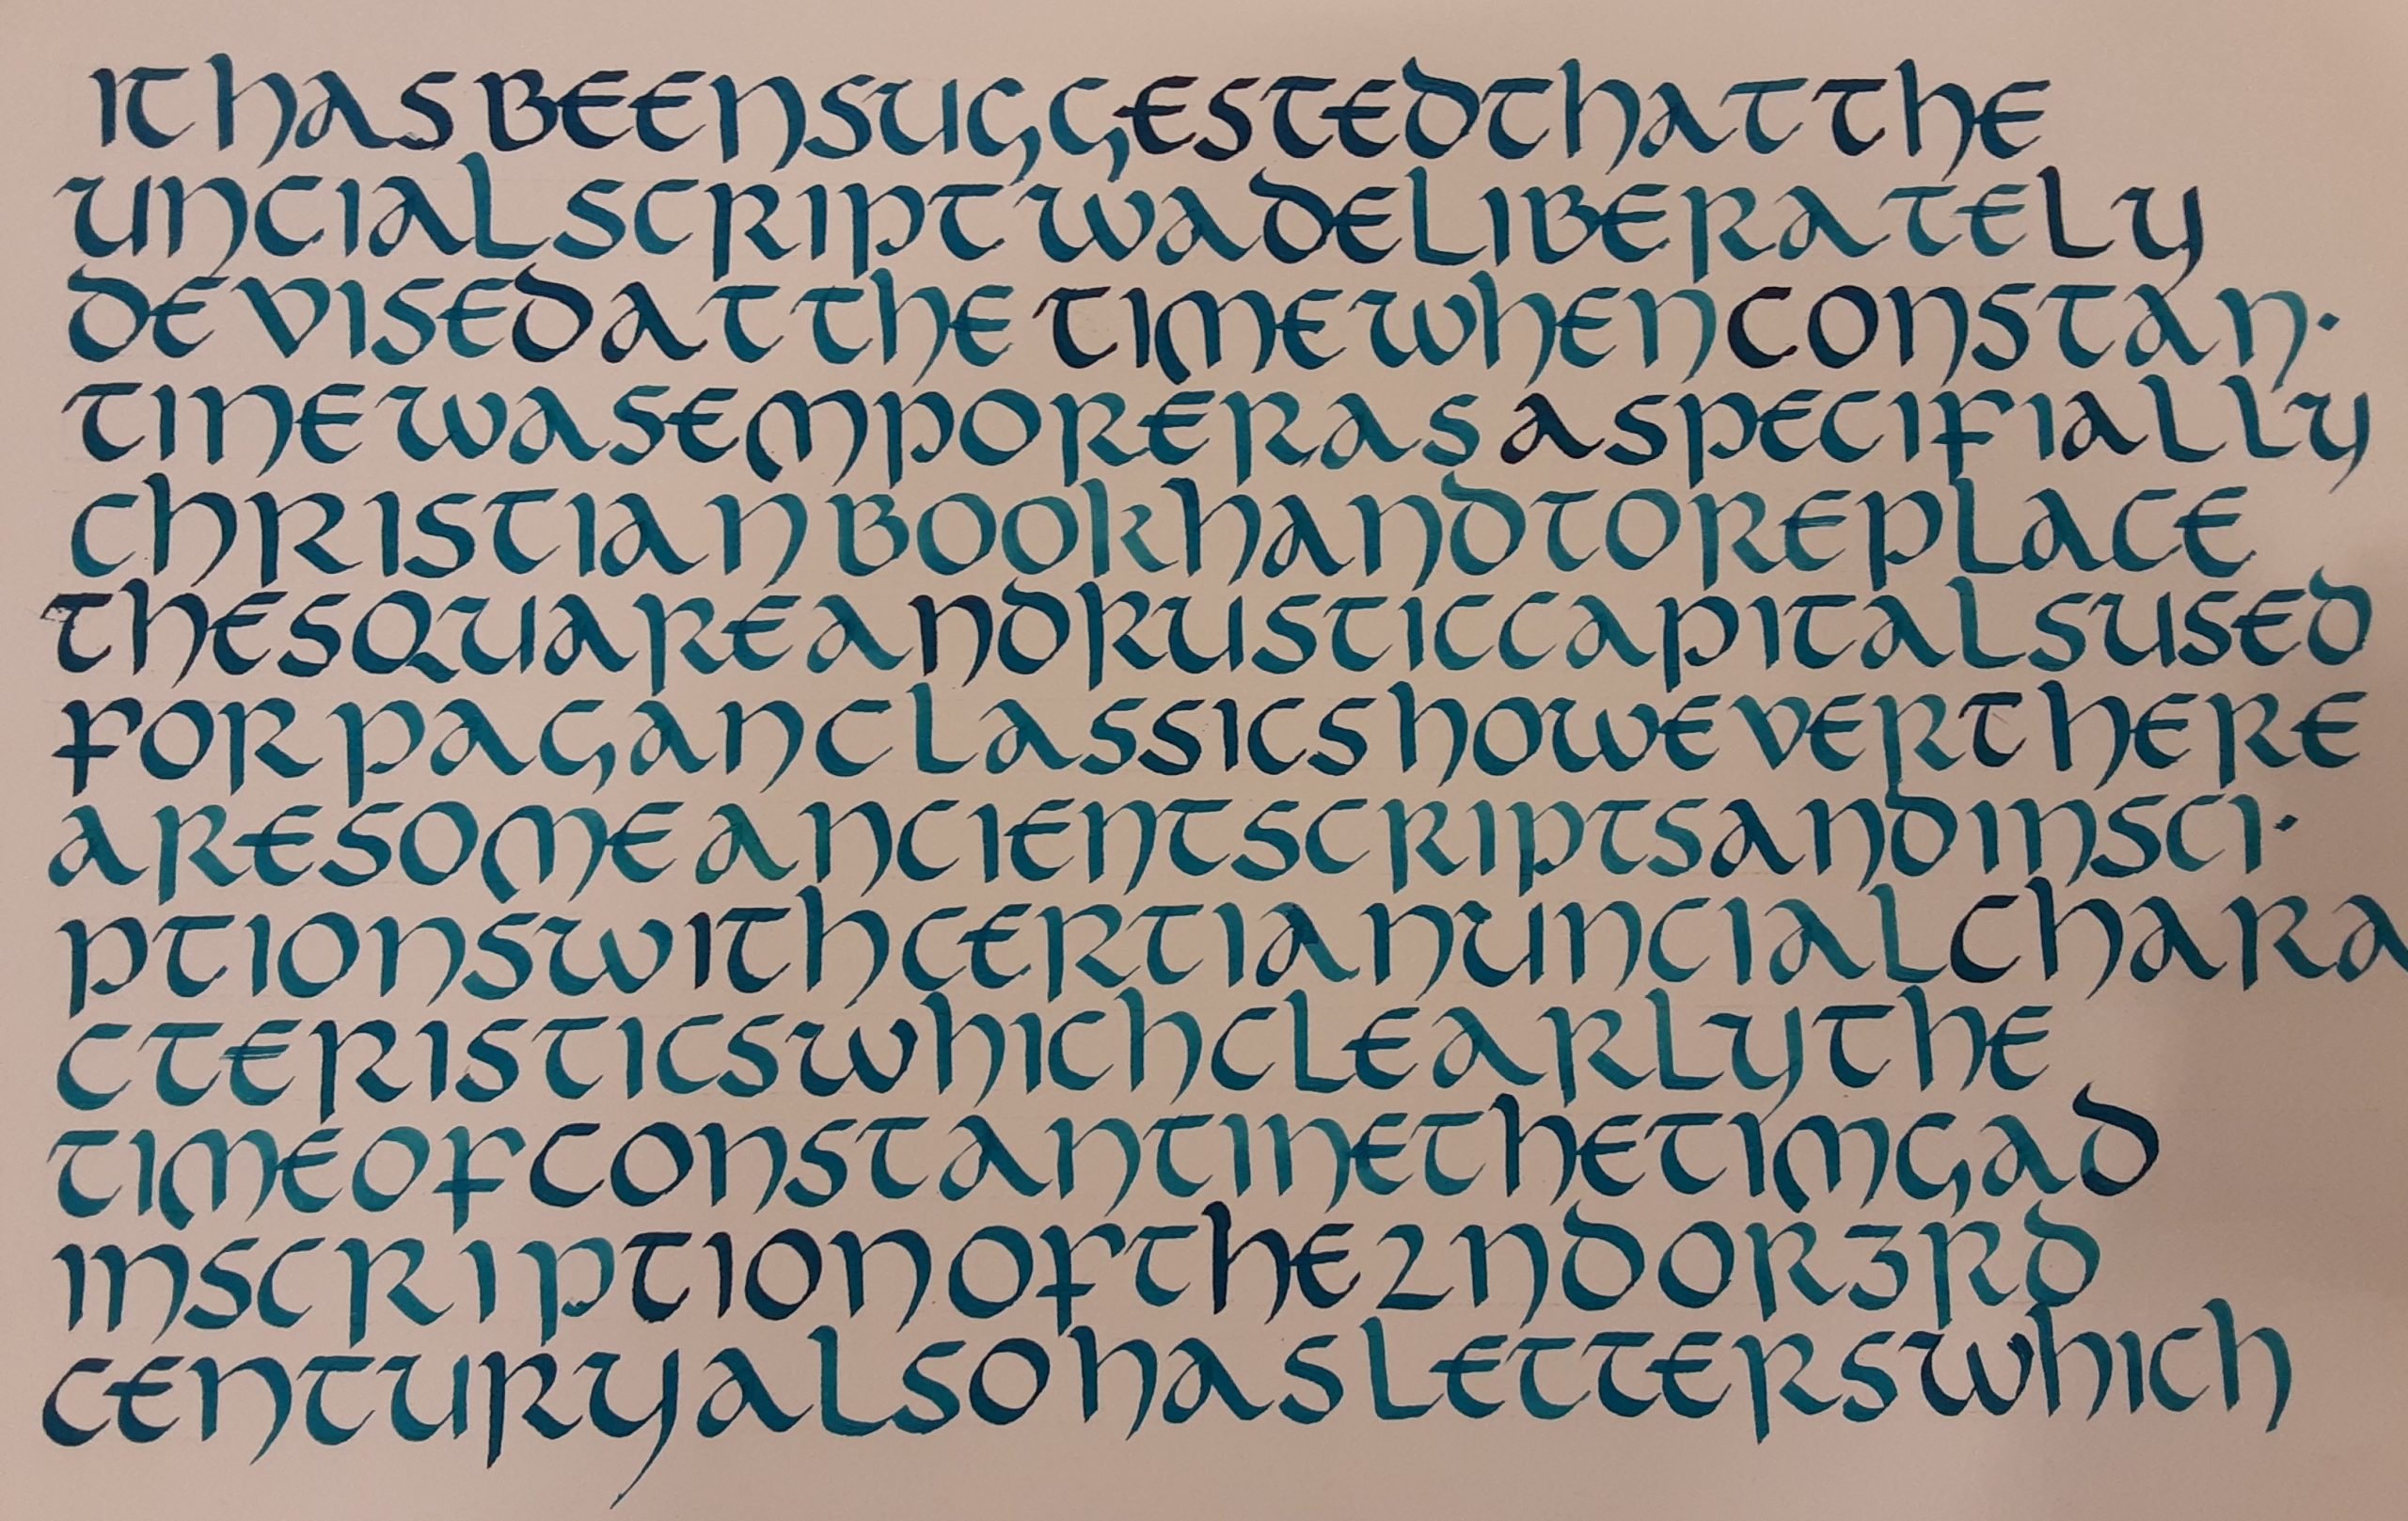 IT HAS BEEN SUGGESTED THAT THE
UNCIAL SCRIPT WA DELIBERATELY
DEVISED AT THE TIME WHEN CONSTAN·
TINE WAS EMPORER AS A SPECIFIALLY
CHRISTIAN BOOK HAND TO REPLACE
THE SQUARE AND RUSTIC CAPITALS USED
FOR PAGAN CLASSICS HOWEVER THERE
ARE SOME ANCIENT SCRIPTS AND INSCI·
PTIONS WITH CERTIAN UNCIAL CHARA
CTERISTICS WHICH CLEARLY THE
TIME OF CONSTANTINE THE TIMGAD
INSCRIPTION OF THE 2ND OR 3RD
CENTURY ALSO HAS LETTERS WHICH